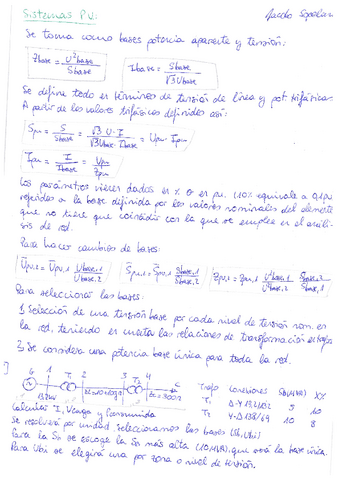 Sistemas P.U.:
Se toma como bases potencia aparente y tensión:
Zbase = U²base / Sbase    Ibase = Sbase / √3 Ubase
Se define todo en términos de tensión de línea y pot. trifásica.
A partir de los valores trifásicos definidos así:
Spu = S / Sbase = √3 · U · I / √3 Ubase · Ibase = Upu · Ipu
Ipu = I / Ibase = Upu / Zpu
Los parámetros vienen dados en % o en pu. (10% equivale a 0,1pu
referidos a la base definida por los valores nominales del elemento
que no tiene que coincidir con la que se emplee en el análi-
sis de red.
Para hacer cambios de bases:
Upu,2 = Upu,1 Ubase,1 / Ubase,2    Spu,2 = Spu,1 Sbase,1 / Sbase,2    Zpu,2 = Zpu,1 U²base,1 / U²base,2 Sbase,2 / Sbase,1
Para seleccionar las bases:
1. Selección de una tensión base por cada nivel de tensión nom. en
la red, teniendo en cuenta las relaciones de transformación
2. Se considera una potencia base única para toda la red.
G 1 T1 2 3 T2 4
13,2kV
Trafo conexiones X%
T1 Δ-Y 5 10
T2 Y-Δ 138/69 10 8
Calcular I, Vcarga y
Se resolverá por unidad, seleccionamos las bases (Sb, Ubi)
Para la Sb se escoge la Sn más alta (10MVA), que será la base única.
Para Ubi se elegirá una por zona o nivel de tensión.